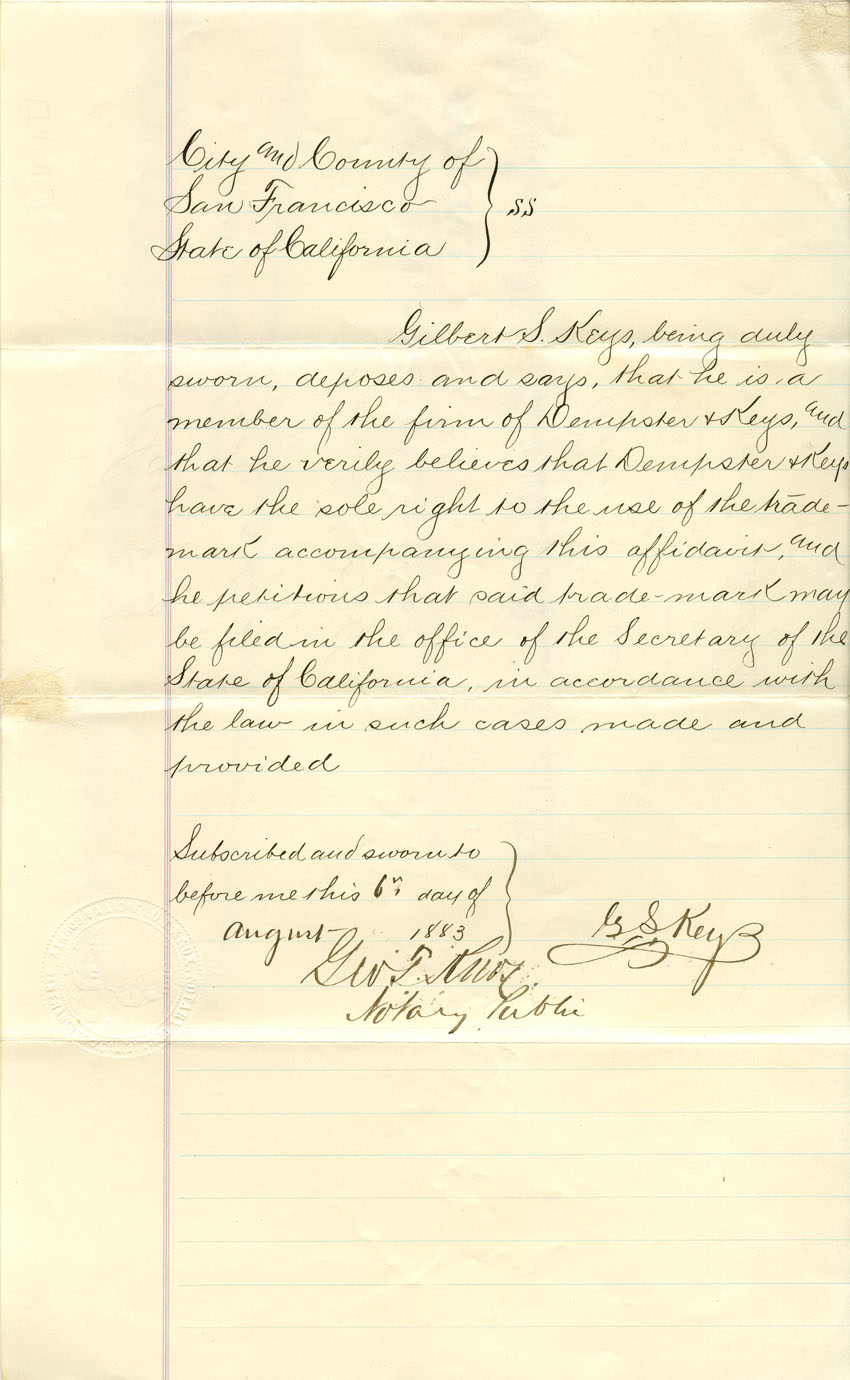 City and County of
San Francisco } SS
State of California
Gilbert S. Keys, being duly
sworn, deposes and says, that he is a
member of the firm of Dempster & Keys, and
that he verily believes that Dempster & Keys
have the sole right to the use of the trade-
mark accompanying this affidavit, and
he petitions that said trade-mark may
be filed in the office of the Secretary of the
State of California, in accordance with
the law in such cases made and
provided
Subscribed and sworn to
before me this 6th day of
August 1883
G S Keys
Geo T. Knox
Notary Public